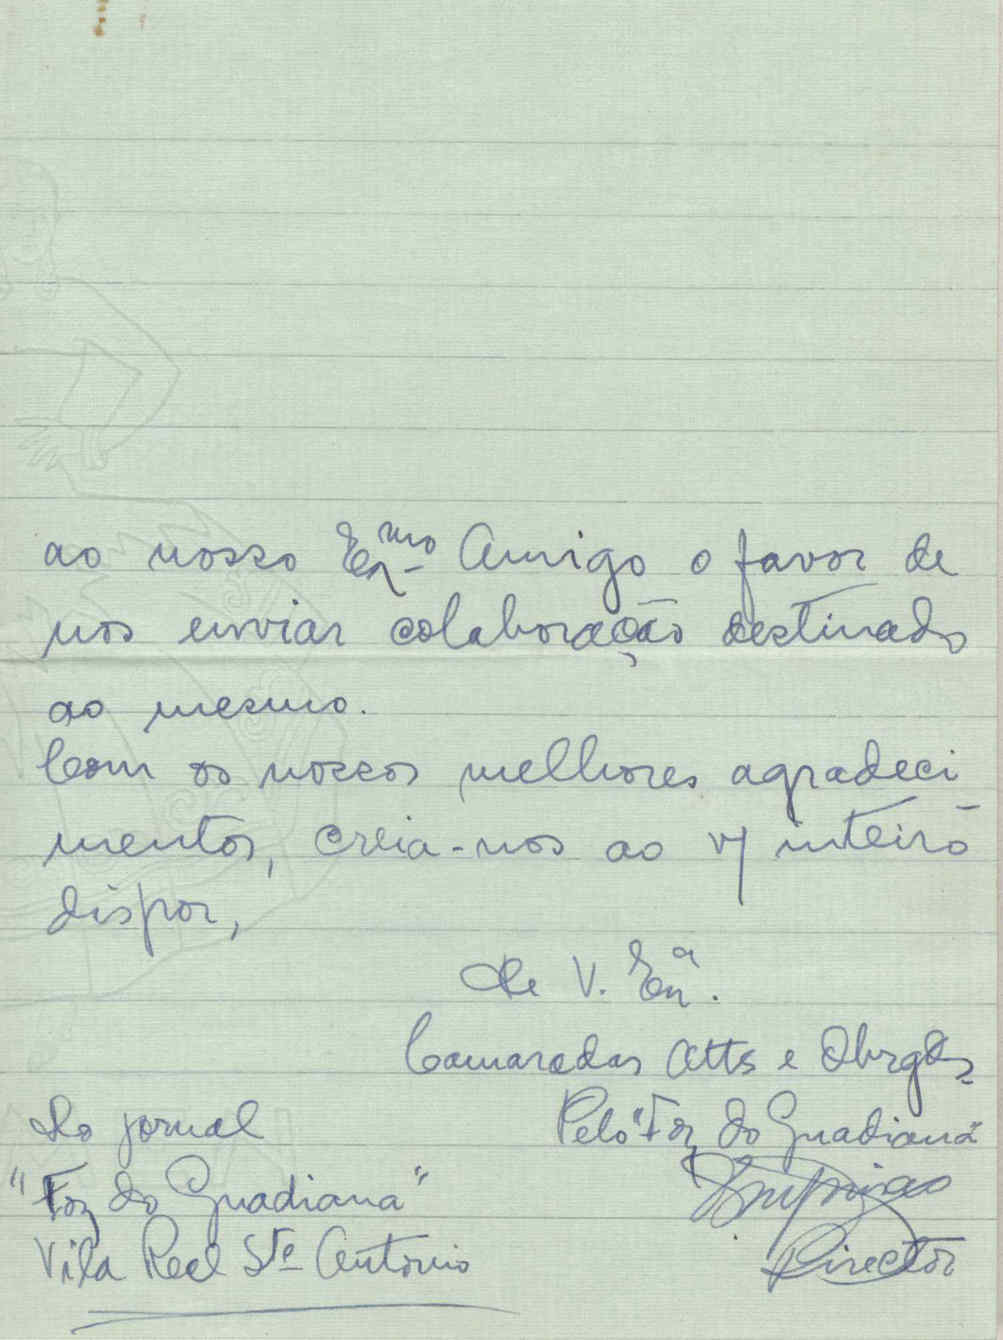 ao nosso Exmo Amigo o favor de
nos enviar colaboração destinado
ao mesmo.
Com os nossos melhores agradeci
mentos, creia-nos ao v/ inteiro
dispor,
De V. Exª.
Camaradas Atts e Obrgds
Do jornal
Pelo "Foz do Guadiana"
"Foz do Guadiana"
Vila Real Stº Antonio
Director